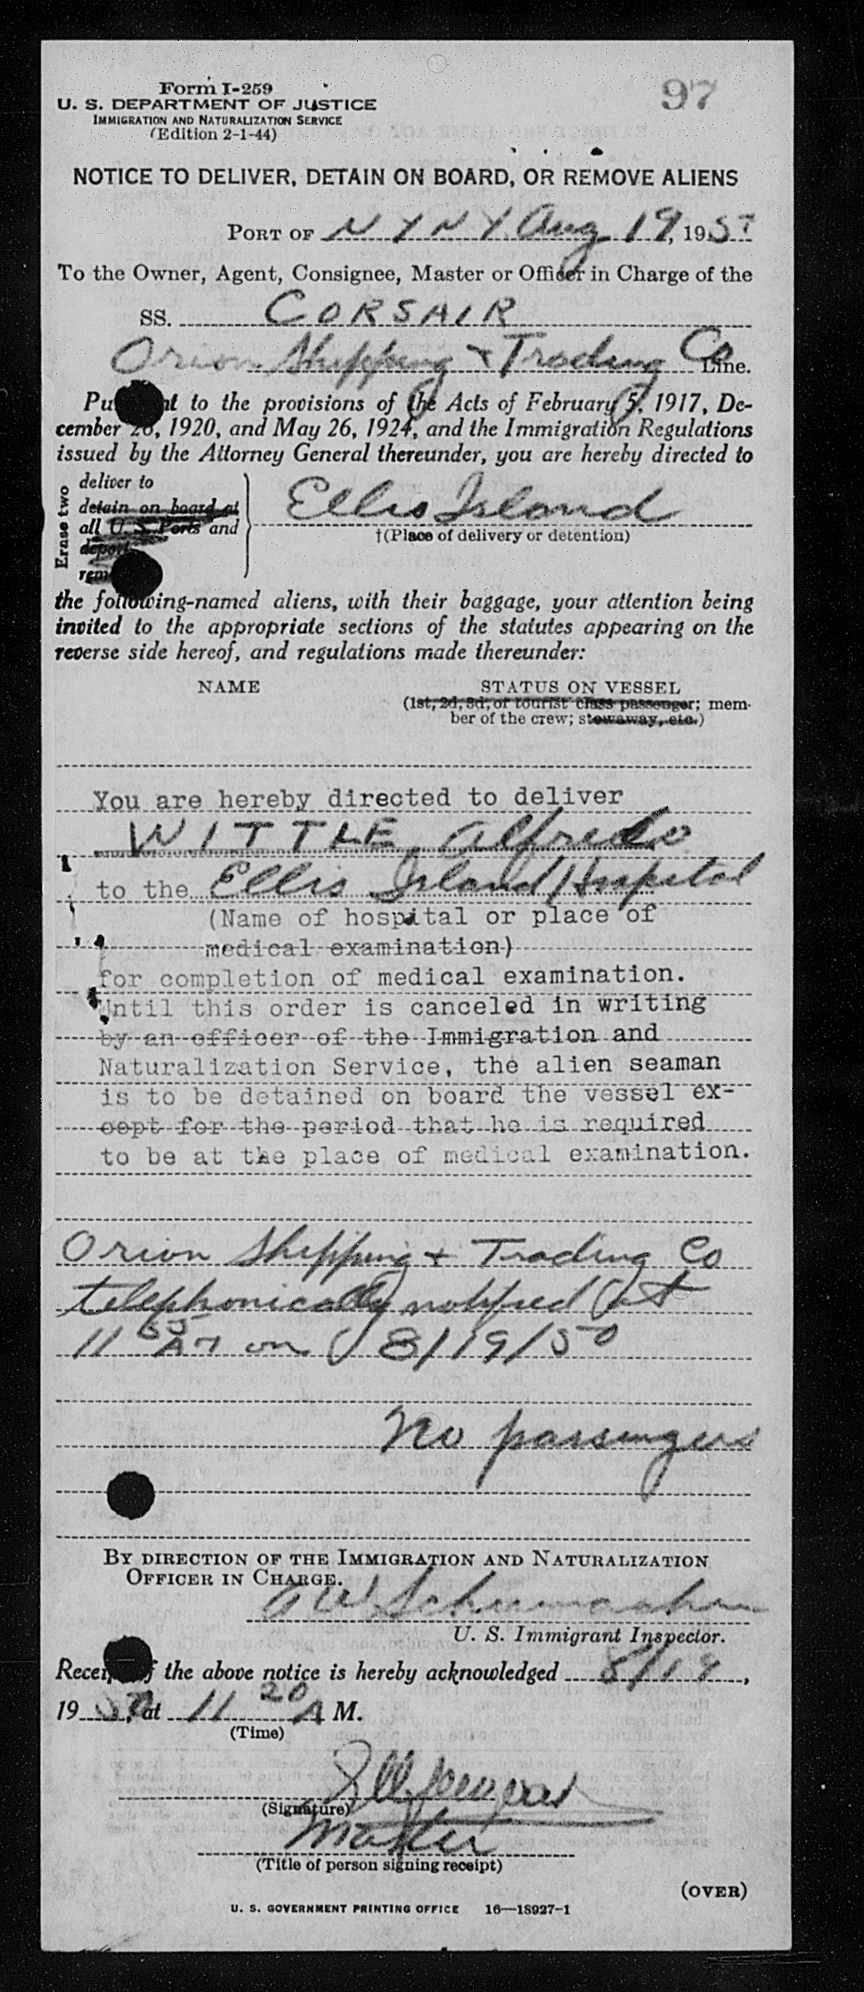 Form I-259
97
U. S. DEPARTMENT OF JUSTICE
IMMIGRATION AND NATURALIZATION SERVICE
(Edition 2-1-44)
NOTICE TO DELIVER, DETAIN ON BOARD, OR REMOVE ALIENS
PORT OF N Y N Y Aug 19, 1950
To the Owner, Agent, Consignee, Master or Officer in Charge of the
SS. CORSAIR
Orion Shipping & Trading Co Line.
Pu t to the provisions of the Acts of February 5, 1917, De-
cember 26, 1920, and May 26, 1924, and the Immigration Regulations
issued by the Attorney General thereunder, you are hereby directed to
Erase two
deliver to
detain on board at
all U. S. Ports and
deport
rem
Ellis Island
†(Place of delivery or detention)
the following-named aliens, with their baggage, your attention being
invited to the appropriate sections of the statutes appearing on the
reverse side hereof, and regulations made thereunder:
NAME STATUS ON VESSEL
(1st, 2d, 3d, or tourist class passenger; mem-
ber of the crew; stowaway, etc.)
You are hereby directed to deliver
WITTLE, Alfredo
to the Ellis Island Hospital
(Name of hospital or place of
medical examination)
for completion of medical examination.
Until this order is canceled in writing
by an officer of the Immigration and
Naturalization Service, the alien seaman
is to be detained on board the vessel ex-
cept for the period that he is required
to be at the place of medical examination.
Orion Shipping & Trading Co
telephonically notified at
11 55 A on 8/19/50
No passengers
BY DIRECTION OF THE IMMIGRATION AND NATURALIZATION
OFFICER IN CHARGE.
U. S. Immigrant Inspector.
Recei f the above notice is hereby acknowledged 8/19,
1950, at 11 20 A M.
(Time)
(Signature)
Master
(Title of person signing receipt)
(OVER)
U. S. GOVERNMENT PRINTING OFFICE 16—18927-1